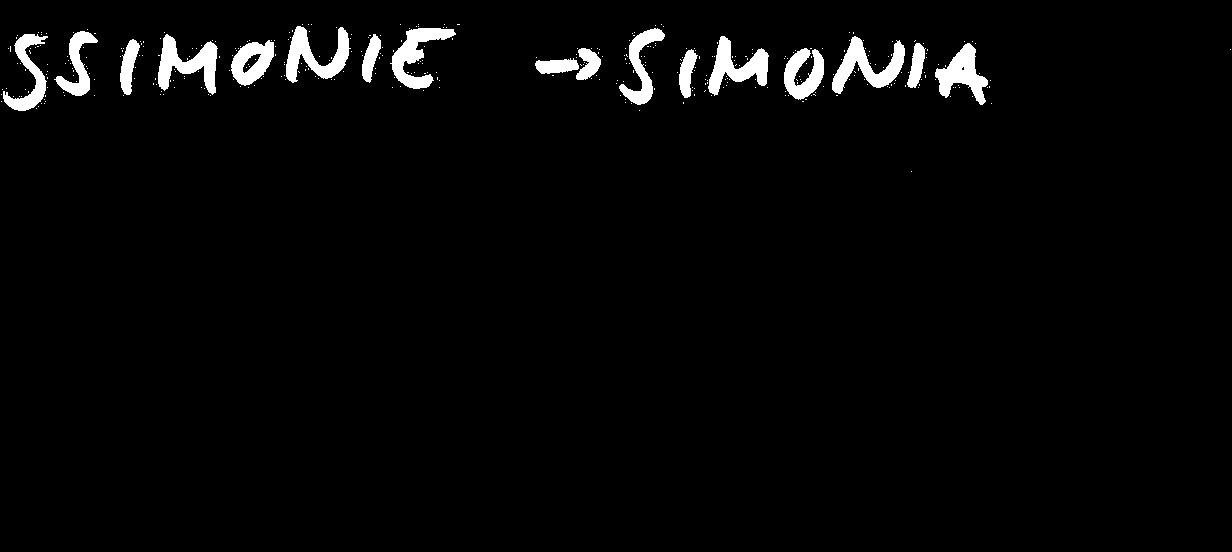 SSIMONIE → SIMONIA